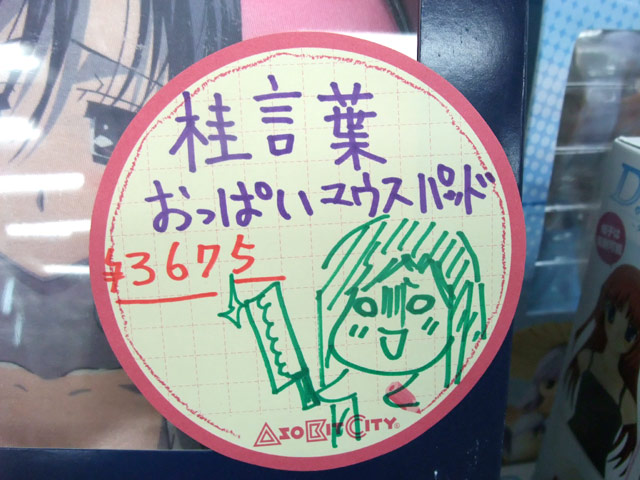 桂言葉
おっぱいマウスパッド
¥3675
ASOBITCITY